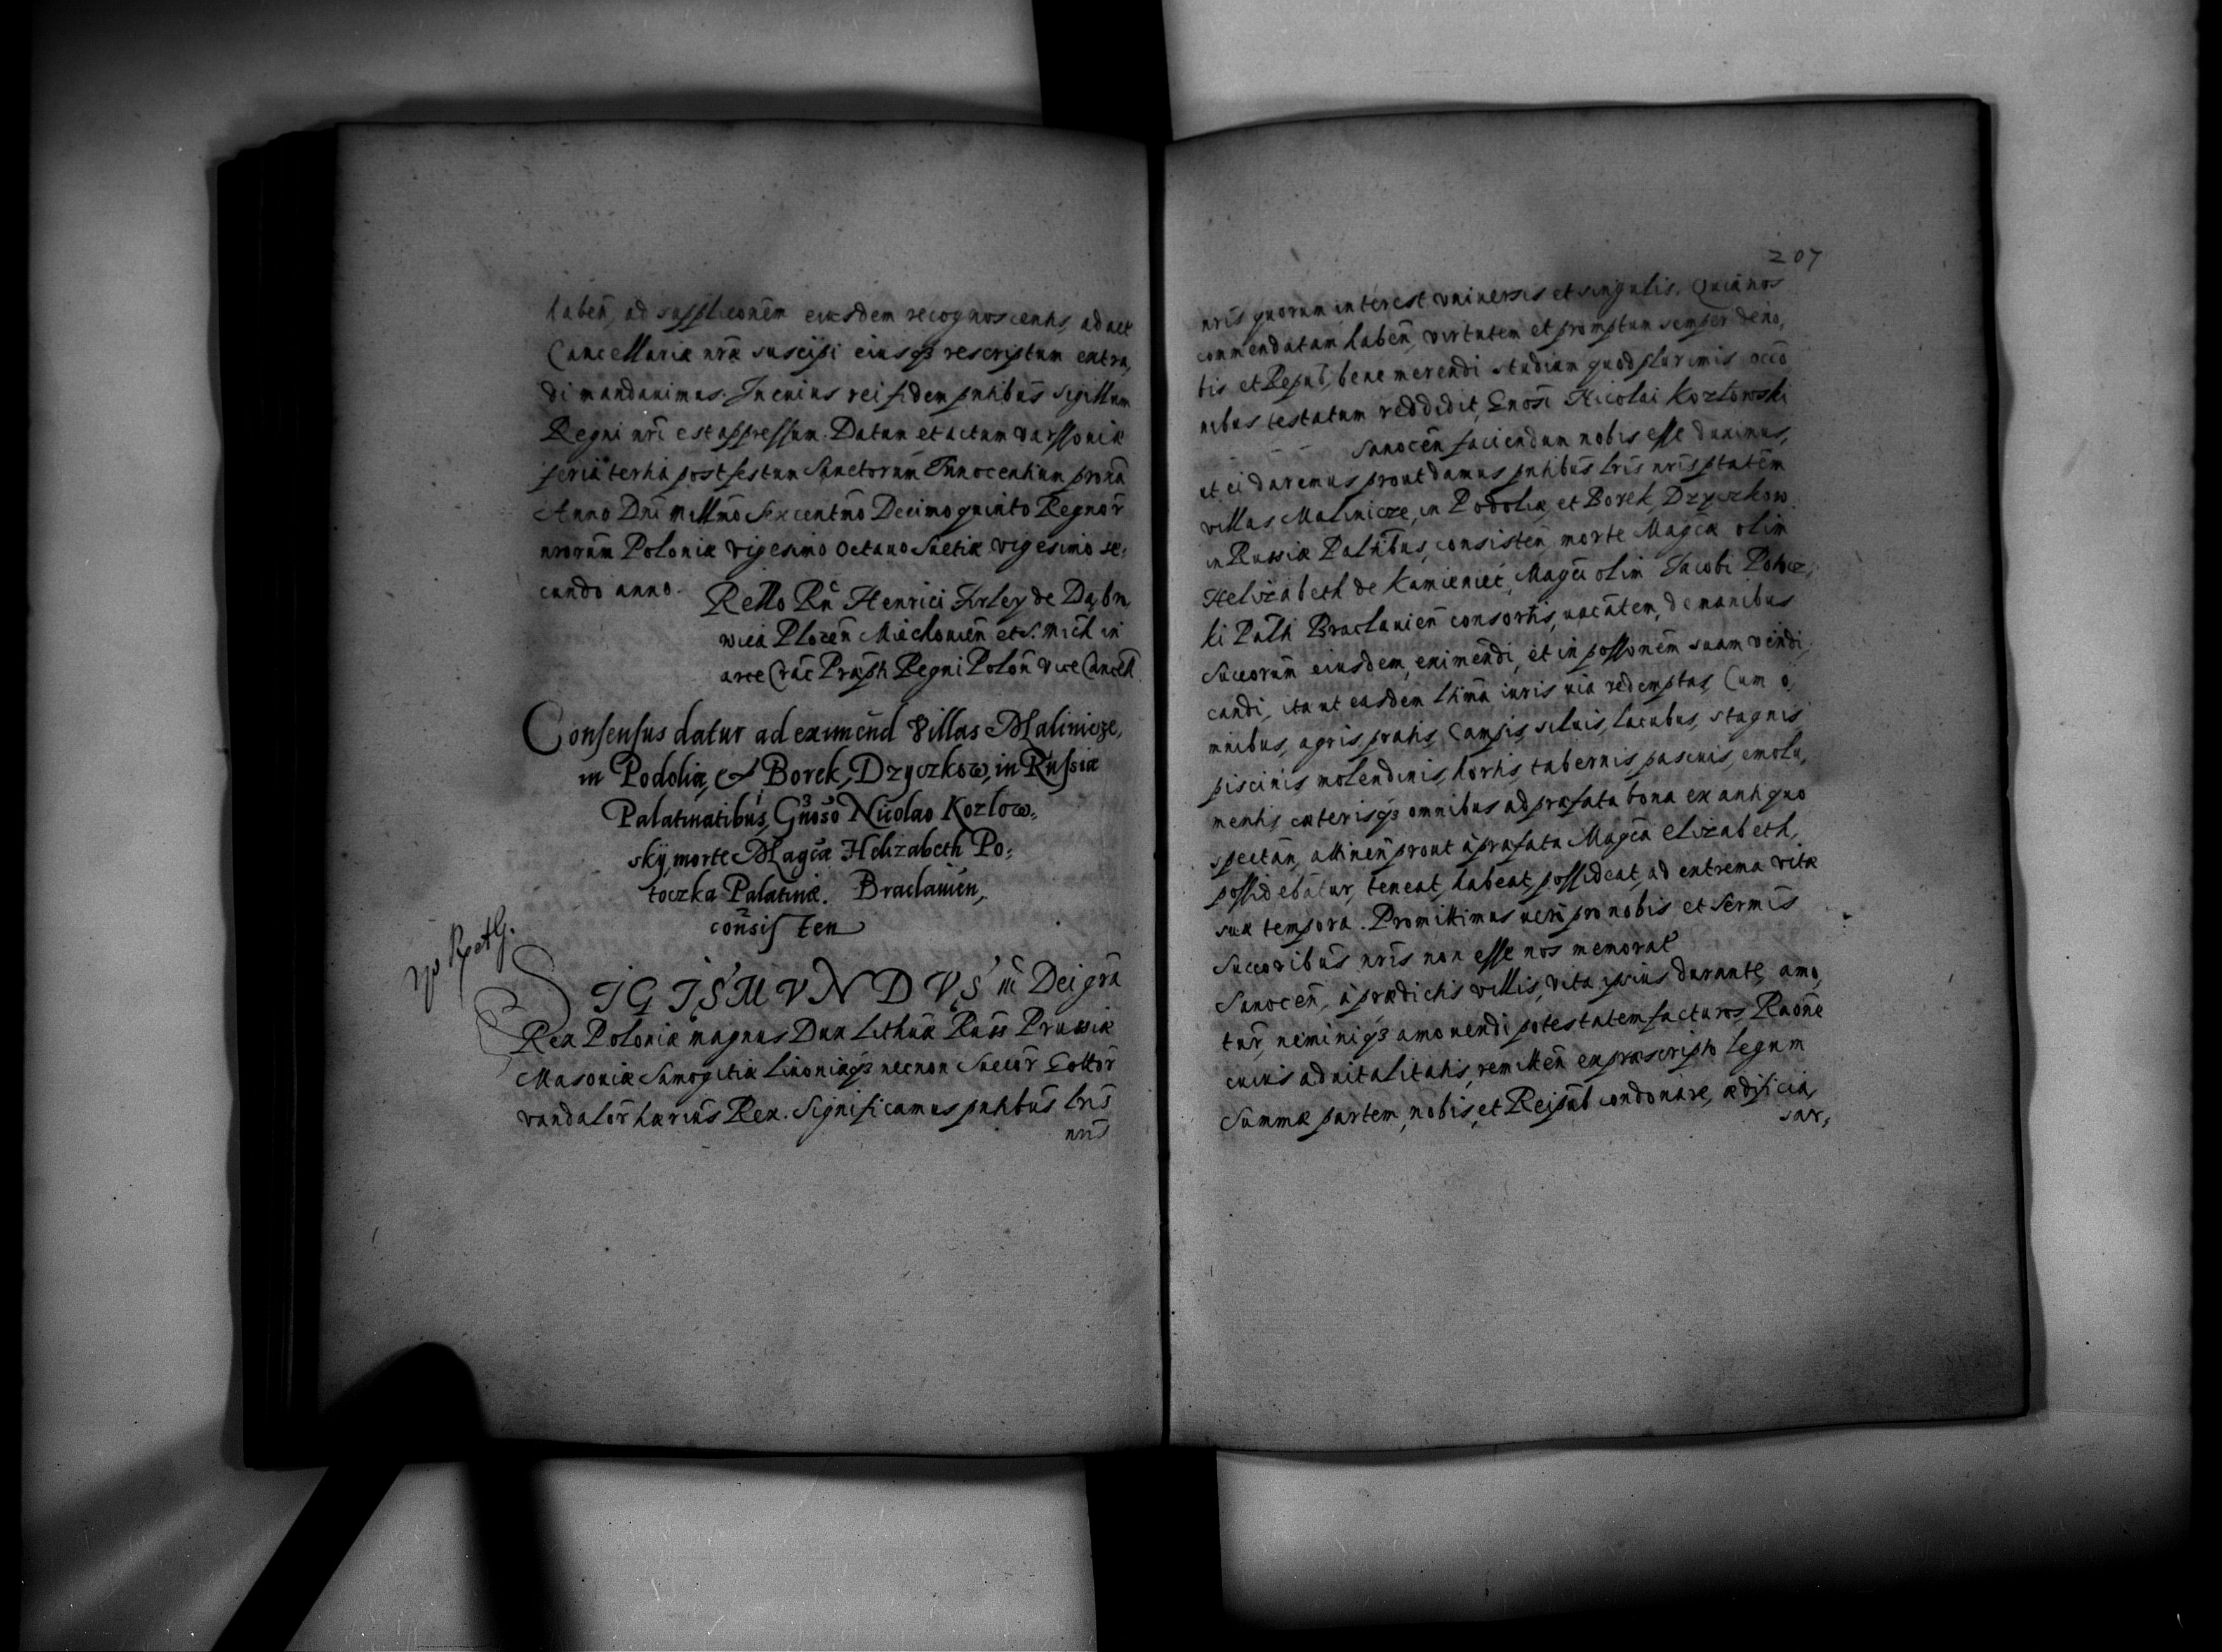 haben̄, ad supplicōnēm eiusdem recognoscentis, ad act
Cancellariæ nr̄æ suscipi eiusqꝫ rescriptum extra,
di mandauimus. In cuius rei fidem pn̄tibus̄ sigillum
Regni nr̄i est appressum. Datum et actum Varssouiæ
feria tertia post festum Sanctorum̄ Innocentium proxā
Anno Dn̄i Millmō Sexcentmō Decimo quinto Regnor̄
nrorum̄ Poloniæ vigesimo octauo Suetiæ vigesimo se,
cundo anno.
Rello Rn̄ Henrici Firley de Dąbro,
wica Plocen̄ Miechouien̄ et S. Mich in
arce Crac̄ Præpti Regni Polon̄ Vice Cancell
Consensus datur ad eximend̄ Villas Malinicze,
in Podoliæ, et Borek, Dzyczkow, in Russiæ
Palatinatibus, Gnōso Nicolao Kozłow,
skÿ, morte Magcæ Helizabeth Po,
toczka Palatinæ. Braclauien̄,
cōnsisten
SIGISMVNDVS iii Dei grā
Rex Poloniæ magnus Dux Lithuæ Russ Prussiæ
Masouiæ Samogitiæ Liuoniæqꝫ necnon Suecor̄ Gottor̄
vandalor̄ hærius̄ Rex. Significamus pn̄tibus̄ lr̄is
nr̄is
207
nr̄is quorum interest vniuersis et singulis. Quia nos
commendatam haben̄, virtutem et promptum semper de nō,
bis et Repub̄, bene merendi studium quod plurimis occō
nibus testatum reddidit, Gnosī Nicolai Kozłowski
Sanocen̄ faciendum nobis esse duximus,
ut ei daremus prout damus pn̄tibus̄ lr̄is nr̄is ptatēm
villas Malinicze, in Podoliæ, et Borek, Dzyczkow
in Russiæ Palntibus, consisten̄, morte Magcæ olim
Helizabeth de Kamieniec, Magcī olim Jacobi Potocz,
ki Palti Braclauien̄ consortis, vacātem, de manibus
Succorum̄ eiusdem, eximendi, et in possonēm suam vendi,
candi, ita ut easdem lt̄ima iuris via redemptas, Cum o,
mnibus, agris, pratis, Campis, siluis, lacubus, stagnis
piscinis molendinis, hortis, tabernis, pascuis, emolu,
mentis, cæterisqꝫ omnibus ad præfata bona ex antiquo
spectan̄, attinen̄ prout à præfata Magcā Elizabeth,
possidebātur, teneat, habeat, possideat, ad extrema vitæ
suæ tempora. Promittimus verò pro nobis et Sermīs
Succoribus̄ nr̄is non esse nos memorat̄
Sanocen̄, à prædictis villis, vita ipsius durante, amo,
tur̄, neminiqꝫ amouendi potestatem facturos, Raōne
cuius aduitalitatis, remitten̄ ex præscripto legum
Summæ partem, nobis, et Reipub̄ condonare, ædificia,
sar,